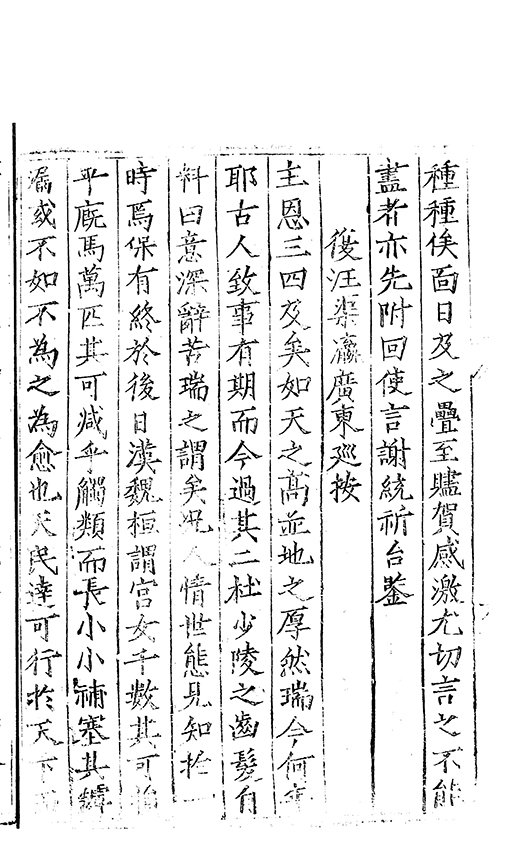 種種俟面日及之疊至賻賀感激尤切言之不能
盡者亦先附回使言謝統祈台鉴
復汪柒瀛廣東廵按
主恩三四及矣如天之高並地之厚然瑞今何年
耶古人致事有期而今過其二杜少陵之齒髮自
料曰意深辭苦瑞之謂矣况人情世態見知於一
時焉保有終於後日漢魏桓謂宫女千數其可損
乎廐馬萬匹其可减乎觸類而長小小補塞其罅
漏或不如不為之為愈也天民達可行於天下而